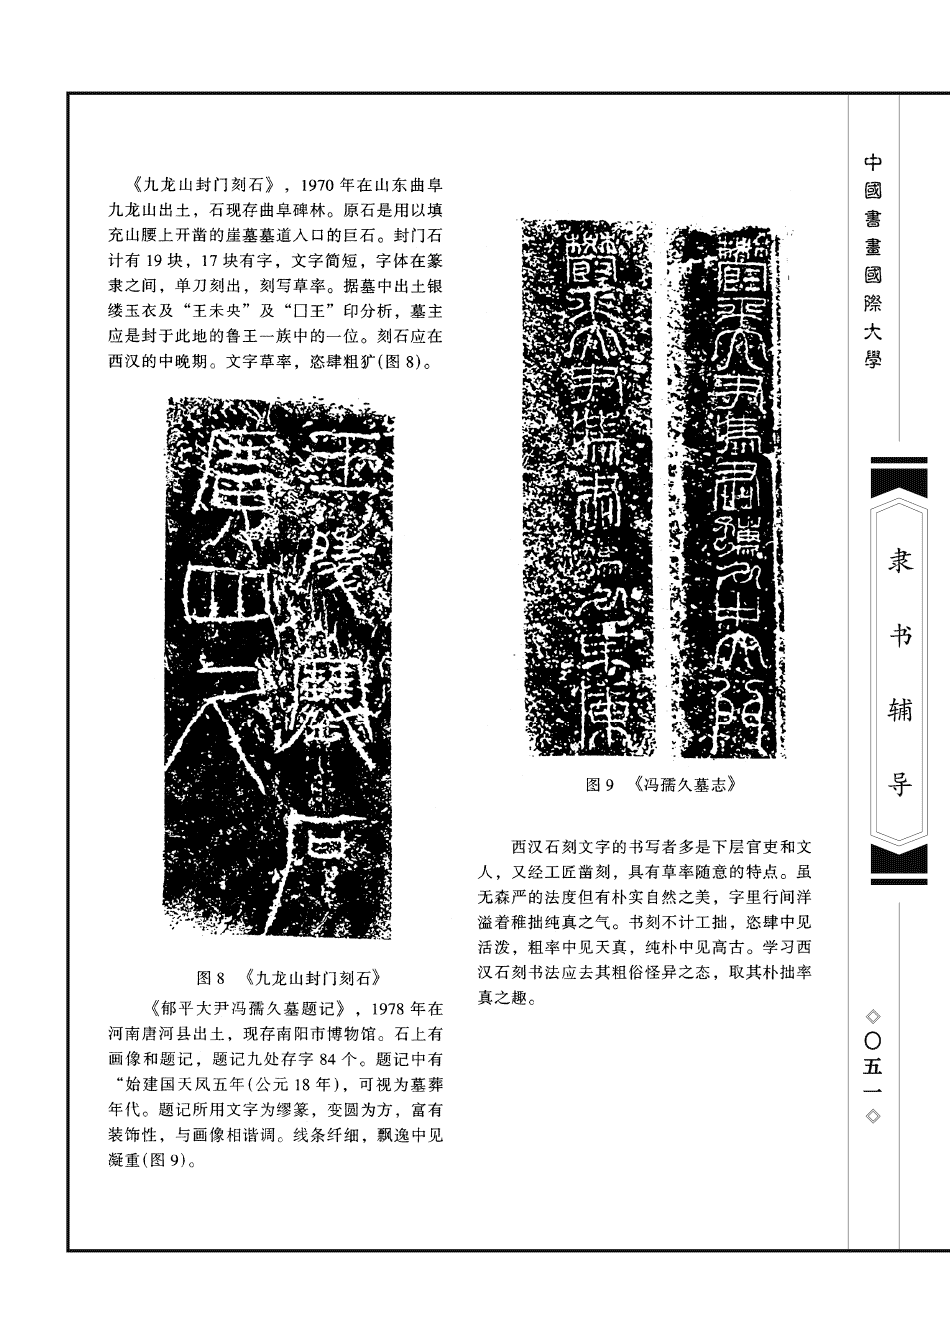 《九龙山封门刻石》，1970 年在山东曲阜
九龙山出土，石现存曲阜碑林。原石是用以填
充山腰上开凿的崖墓墓道入口的巨石。封门石
计有 19 块，17 块有字，文字简短，字体在篆
隶之间，单刀刻出，刻写草率。据墓中出土银
缕玉衣及“王未央”及“囗王”印分析，墓主
应是封于此地的鲁王一族中的一位。刻石应在
西汉的中晚期。文字草率，恣肆粗犷(图 8)。
王陵塞石
广四尺
图 8 《九龙山封门刻石》
《郁平大尹冯孺久墓题记》，1978 年在
河南唐河县出土，现存南阳市博物馆。石上有
画像和题记，题记九处存字 84 个。题记中有
“始建国天凤五年(公元 18 年)，可视为墓葬
年代。题记所用文字为缪篆，变圆为方，富有
装饰性，与画像相谐调。线条纤细，飘逸中见
凝重(图 9)。
图 9 《冯孺久墓志》
西汉石刻文字的书写者多是下层官吏和文
人，又经工匠凿刻，具有草率随意的特点。虽
无森严的法度但有朴实自然之美，字里行间洋
溢着稚拙纯真之气。书刻不计工拙，恣肆中见
活泼，粗率中见天真，纯朴中见高古。学习西
汉石刻书法应去其粗俗怪异之态，取其朴拙率
真之趣。
中國書畫國際大學
隶书辅导
◇〇五一◇